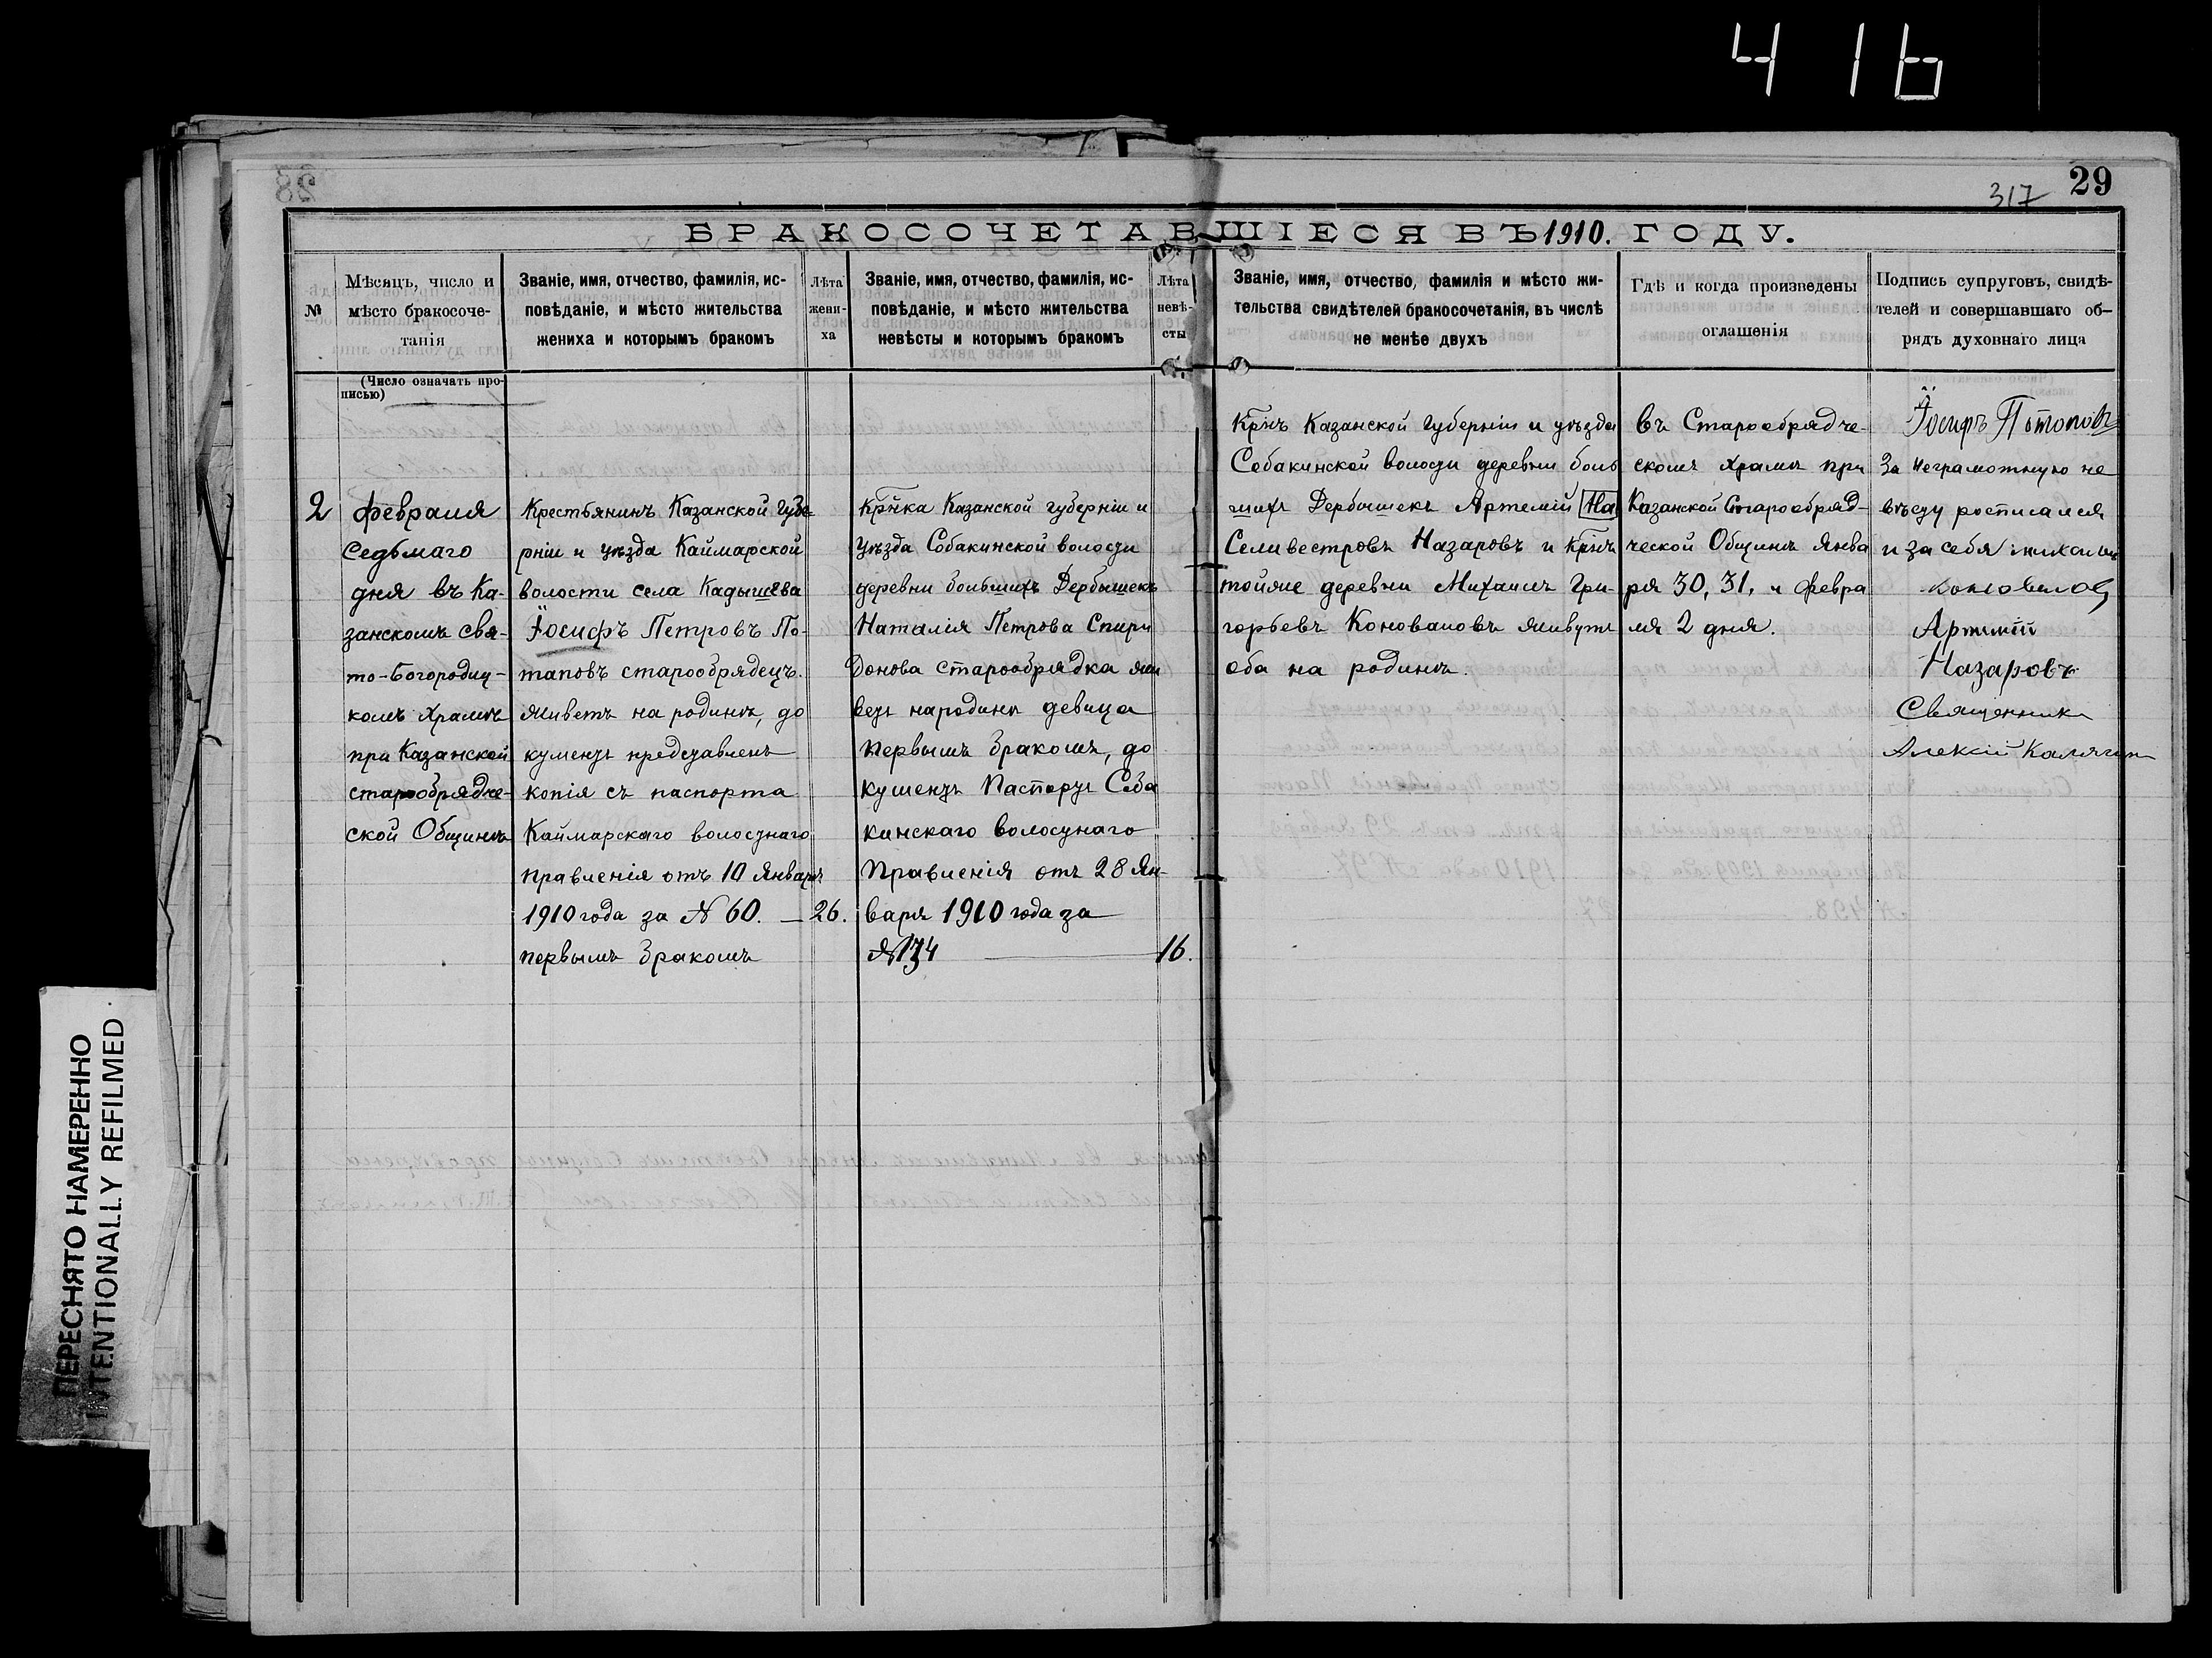 416
28
317
29
БРАКОСОЧЕТАВШІЕСЯ ВЪ 1910. ГОДУ.
№
Мѣсяцъ, число и
мѣсто бракосоче-
танія
Званіе, имя, отчество, фамилія, ис-
повѣданіе, и мѣсто жительства
жениха и которымъ бракомъ
Лѣта
жени-
ха
Званіе, имя, отчество, фамилія, ис-
повѣданіе, и мѣсто жительства
невѣсты и которымъ бракомъ
Лѣта
невѣ-
сты
Званіе, имя, отчество, фамилія и мѣсто жи-
тельства свидѣтелей бракосочетанія, въ числѣ
не менѣе двухъ
Гдѣ и когда произведены
оглашенія
Подпись супруговъ, свидѣ-
телей и совершавшаго об-
рядъ духовнаго лица
(Число означать про-
писью)
2
Февраля
Седьмаго
дня въ Ка-
занскомъ свя-
то-Богородиц-
комъ храмѣ
при Казанской
старообрядче-
ской Общинѣ
Крестьянинъ Казанской Губе-
рніи и уѣзда Каймарской
волости села Кадышева
Іосифъ Петровъ По-
таповъ старообрядецъ.
живетъ на родинѣ, до
кументъ представленъ
копія съ паспорта
Каймарскаго волостнаго
правленія отъ 10 Января
1910 года за № 60. — 26.
первымъ бракомъ
Крнка Казанской губерніи и
уѣзда Собакинской волости
деревни большихъ Дербышекъ
Наталія Петрова Спири
донова старообрядка жи
ветъ народинѣ девица
первымъ бракомъ, до
кументъ Паспортъ Соба
кинскаго волостнаго
Правленія отъ 28 Ян-
варя 1910 года за
№ 134 — 16.
Крнъ Казанской Губерніи и уѣзда
Собакинской волости деревни боль
шихъ Дербышекъ Артемій На
Селивестровъ Назаровъ и Крнъ
тойже деревни Михаилъ Гри-
горьевъ Коноваловъ живутъ
оба на родинѣ.
въ Старообрядче-
скомъ храмѣ при
Казанской Старообряд-
ческой Общинѣ Янва
ря 30, 31, и Февра
ля 2 дня.
Іосифъ Потоповъ
За неграмотную не
вѣсту росписался
и за себя михаилъ
коновалов
Артемій
Назаровъ
Священникъ
Алексій Калягин
ПЕРЕСНЯТО НАМЕРЕННО
INTENTIONALLY REFILMED